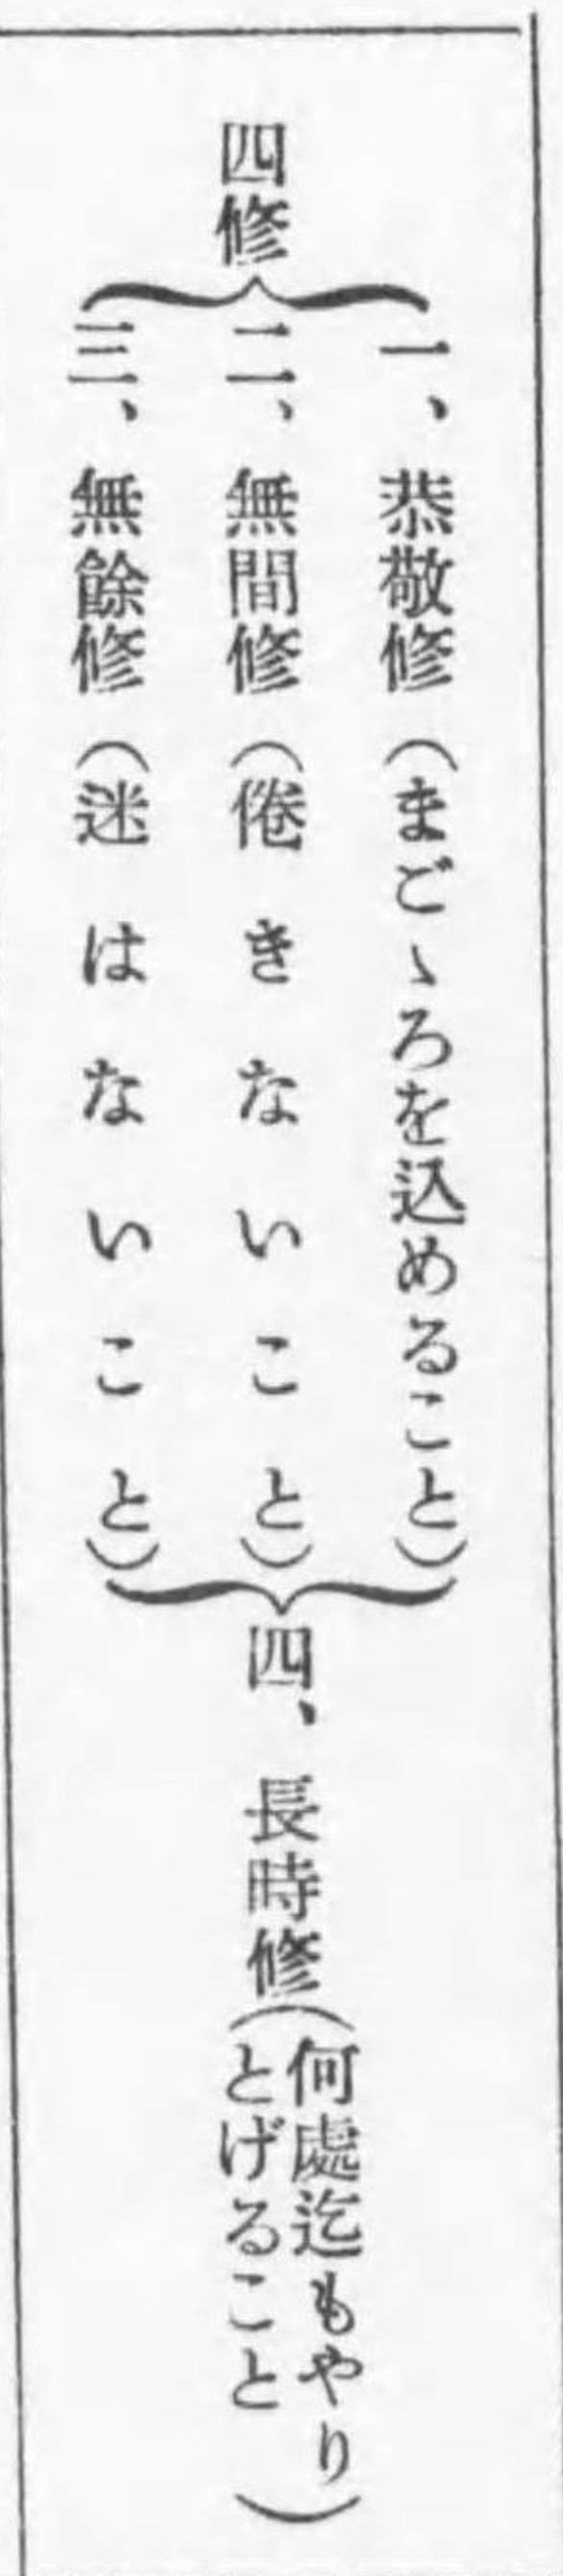 四修
一、恭敬修(まごゝろを込めること)
二、無間修(倦きないこと)
三、無餘修(迷はないこと)
四、長時修(何處迄もやり
とげること)